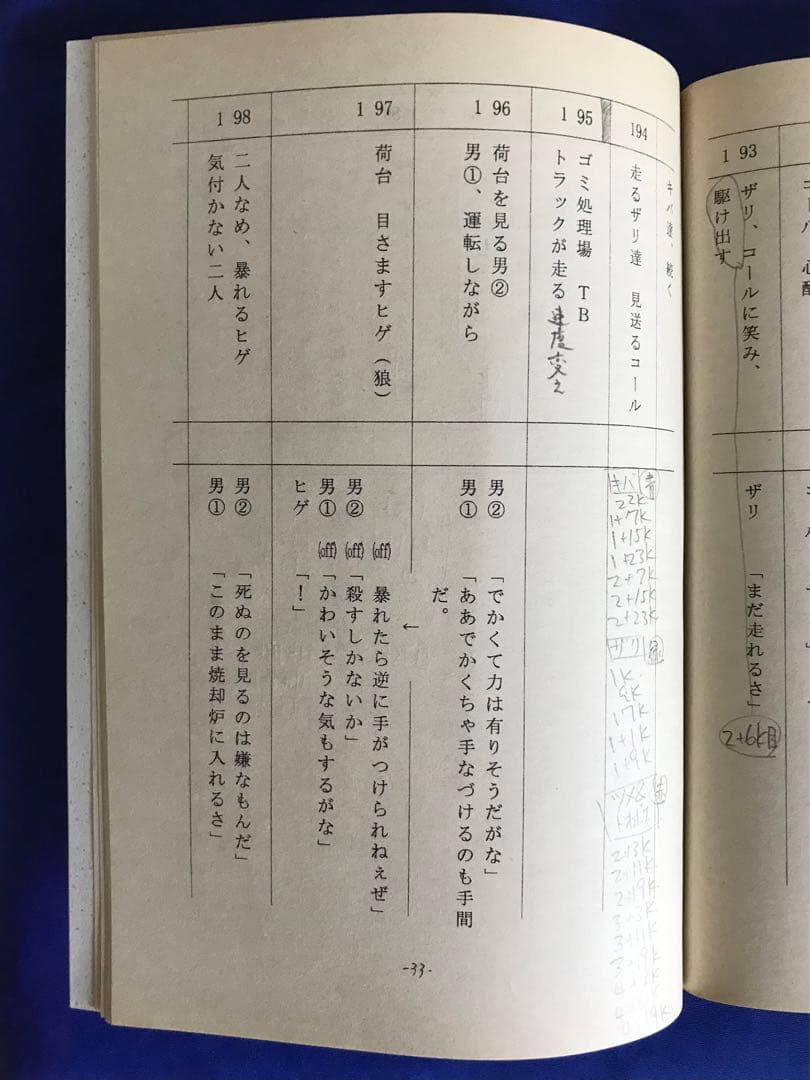 心配
193
ザリ、コールに笑み、
駆け出す
ザリ 「まだ走れるさ」
キバ達、続く
194
走るザリ達 見送るコール
キバ 青
22K
1+7K
1+15K
1+23K
2+7K
2+15K
2+23K
ザリ
1K
9K
17K
1+1K
1+9K
2+3K
2+11K
2+19K
3+3K
3+11K
195
ゴミ処理場 TB
トラックが走る 速度変え
196
荷台を見る男②
男①、運転しながら
男② 「でかくて力は有りそうだがな」
男① 「ああでかくちゃ手なづけるのも手間
だ。
←
197
荷台 目さますヒゲ(狼)
(off) 暴れたら逆に手がつけられねぇぜ」
男② (off) 「殺すしかないか」
男① (off) 「かわいそうな気もするがな」
ヒゲ 「!」
198
二人なめ、暴れるヒゲ
気付かない二人
男② 「死ぬのを見るのは嫌なもんだ」
男① 「このまま焼却炉に入れるさ」
-33-